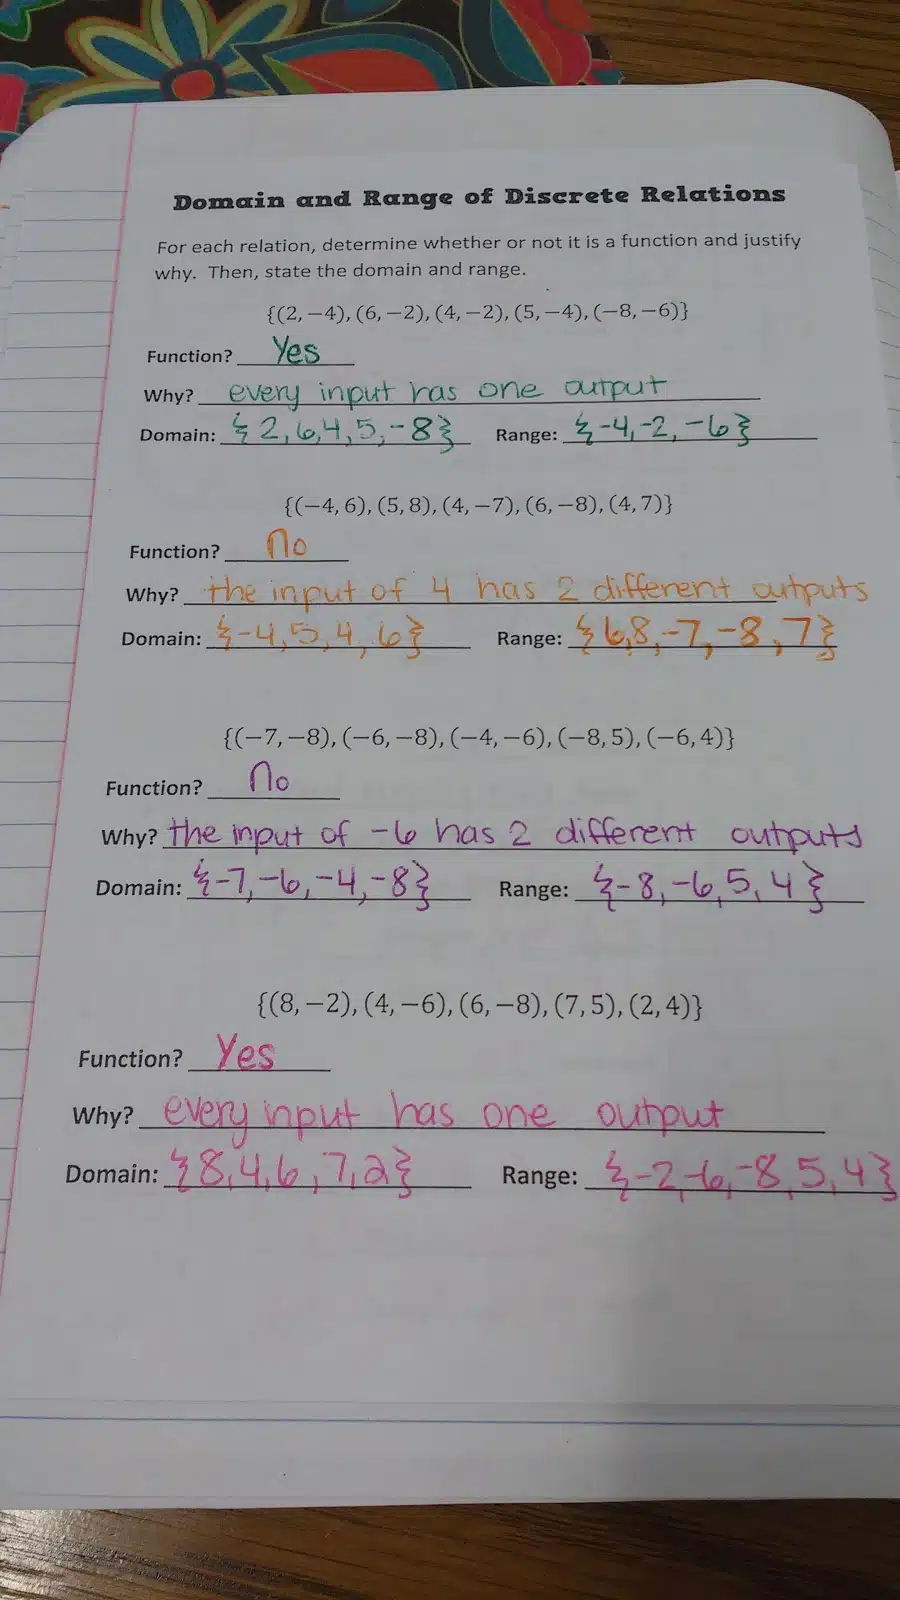 Domain and Range of Discrete Relations
For each relation, determine whether or not it is a function and justify
why. Then, state the domain and range.
{(2, −4), (6, −2), (4, −2), (5, −4), (−8, −6)}
Function? Yes
Why? every input has one output
Domain: {2, 6, 4, 5, -8} Range: {-4, -2, -6}
{(−4, 6), (5, 8), (4, −7), (6, −8), (4, 7)}
Function? no
Why? the input of 4 has 2 different outputs
Domain: {-4, 5, 4, 6} Range: {6, 8, -7, -8, 7}
{(−7, −8), (−6, −8), (−4, −6), (−8, 5), (−6, 4)}
Function? no
Why? the input of -6 has 2 different outputs
Domain: {-7, -6, -4, -8} Range: {-8, -6, 5, 4}
{(8, −2), (4, −6), (6, −8), (7, 5), (2, 4)}
Function? Yes
Why? every input has one output
Domain: {8, 4, 6, 7, 2} Range: {-2, -6, -8, 5, 4}